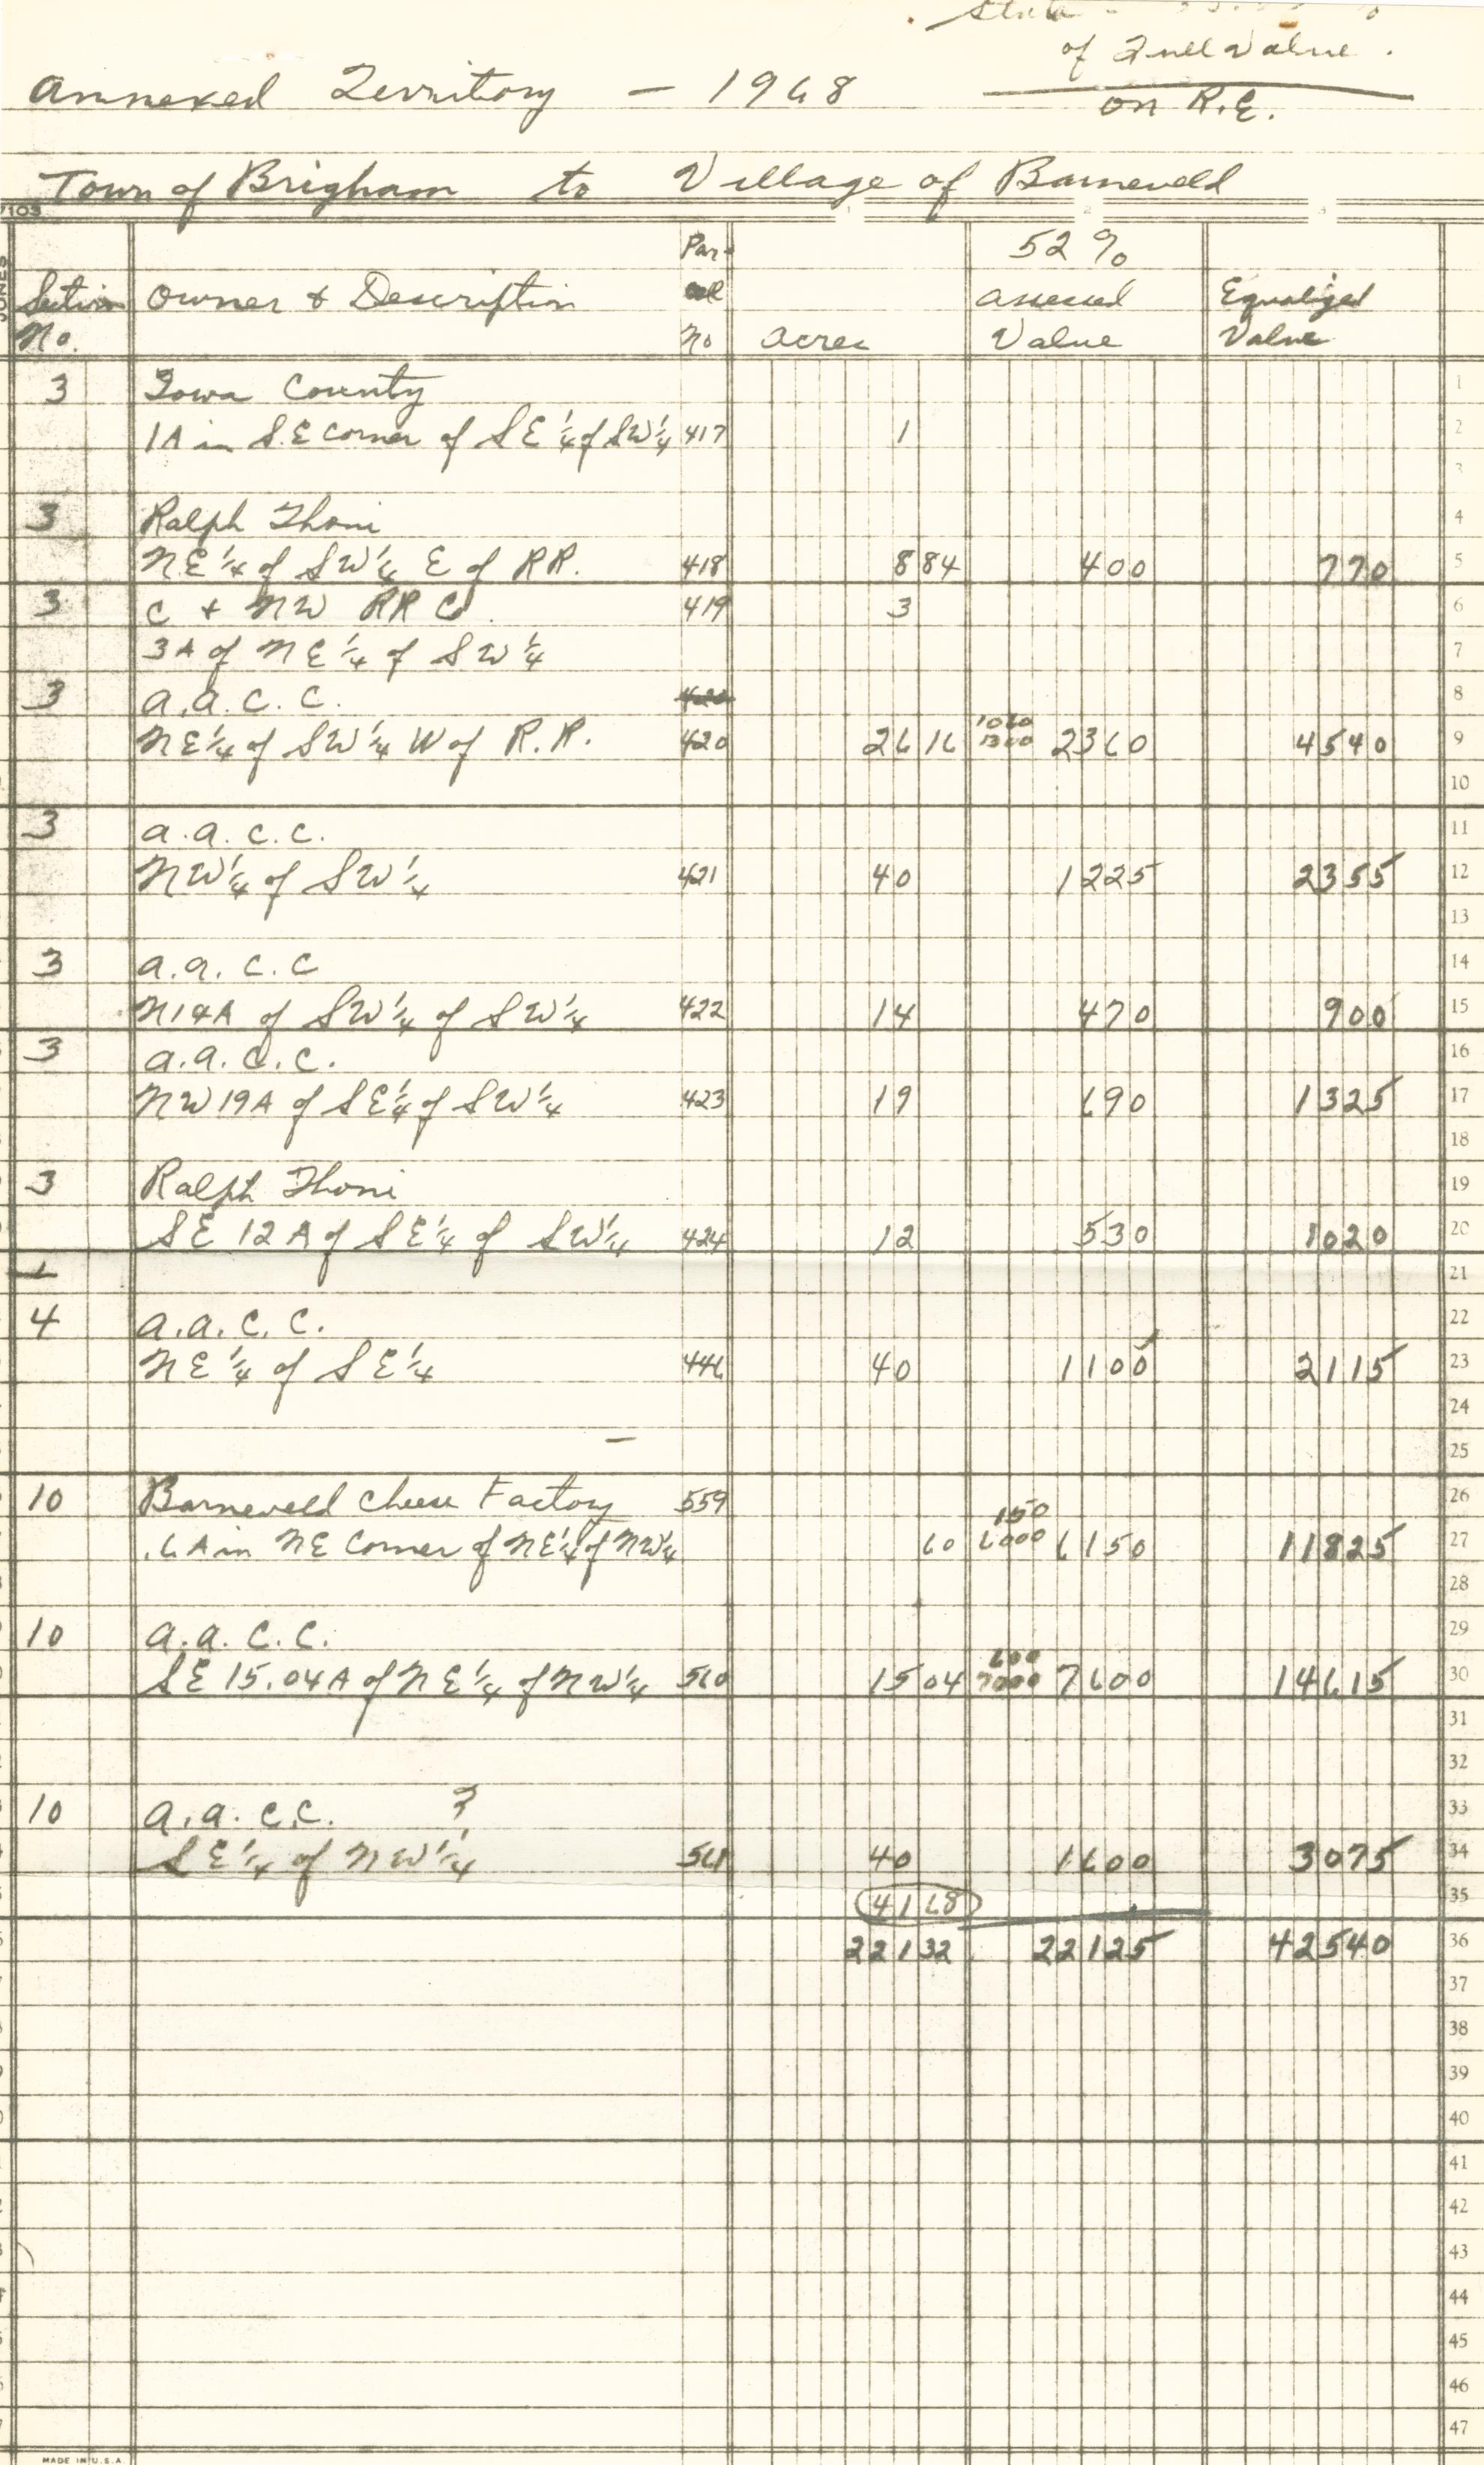 State
of Full Value.
on R.E.
Annexed Territory — 1968
Town of Brigham to Village of Barneveld
7103
Par-
52%
Section Owner & Description cel Assessed Equalized
No. No Acres Value Value
3 Iowa County 1
1A in S.E corner of SE 1/4 of SW 1/4 417 1 2
3
3 Ralph Thoni 4
NE 1/4 of SW 1/4 E of RR. 418 8 84 400 770 5
3 C & NW RR Co. 419 3 6
3A of NE 1/4 of SW 1/4 7
3 A.A.C.C. 420 8
1060
NE 1/4 of SW 1/4 W of R.R. 420 26 16 1300 2360 4540 9
10
3 A.A.C.C. 11
NW 1/4 of SW 1/4 421 40 1225 2355 12
13
3 A.A.C.C 14
N14A of SW 1/4 of SW 1/4 422 14 470 900 15
3 A.A.C.C. 16
NW 19A of SE 1/4 of SW 1/4 423 19 690 1325 17
18
3 Ralph Thoni 19
SE 12A of SE 1/4 of SW 1/4 424 12 530 1020 20
21
4 A.A.C.C. 22
NE 1/4 of SE 1/4 446 40 1100 2115 23
24
25
10 Barneveld Cheese Factory 559 26
150
.6A in NE Corner of NE 1/4 of NW 1/4 60 6000 6150 11825 27
28
10 A.A.C.C. 29
600
SE 15.04A of NE 1/4 of NW 1/4 560 15 04 7000 7600 14615 30
31
32
10 A.A.C.C. ? 33
SE 1/4 of NW 1/4 561 40 1600 3075 34
41 68 35
221 32 22125 42540 36
37
38
39
40
41
42
43
44
45
46
47
MADE IN U.S.A.